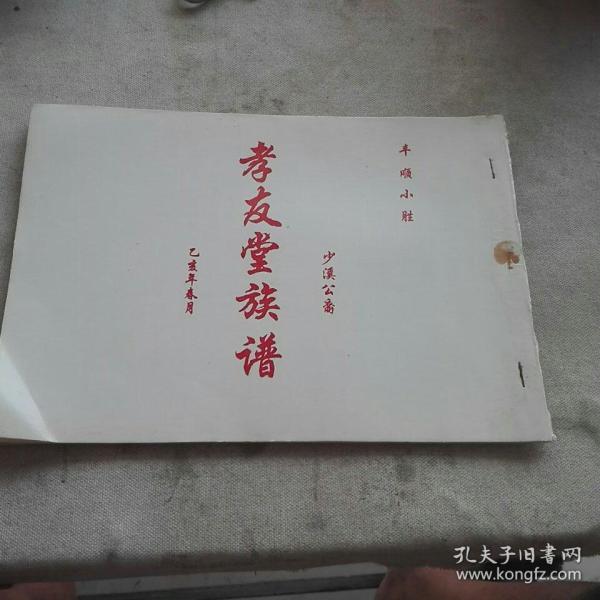 丰顺小胜
少溪公裔
孝友堂族谱
乙亥年春月
孔夫子旧书网
www.kongfz.com